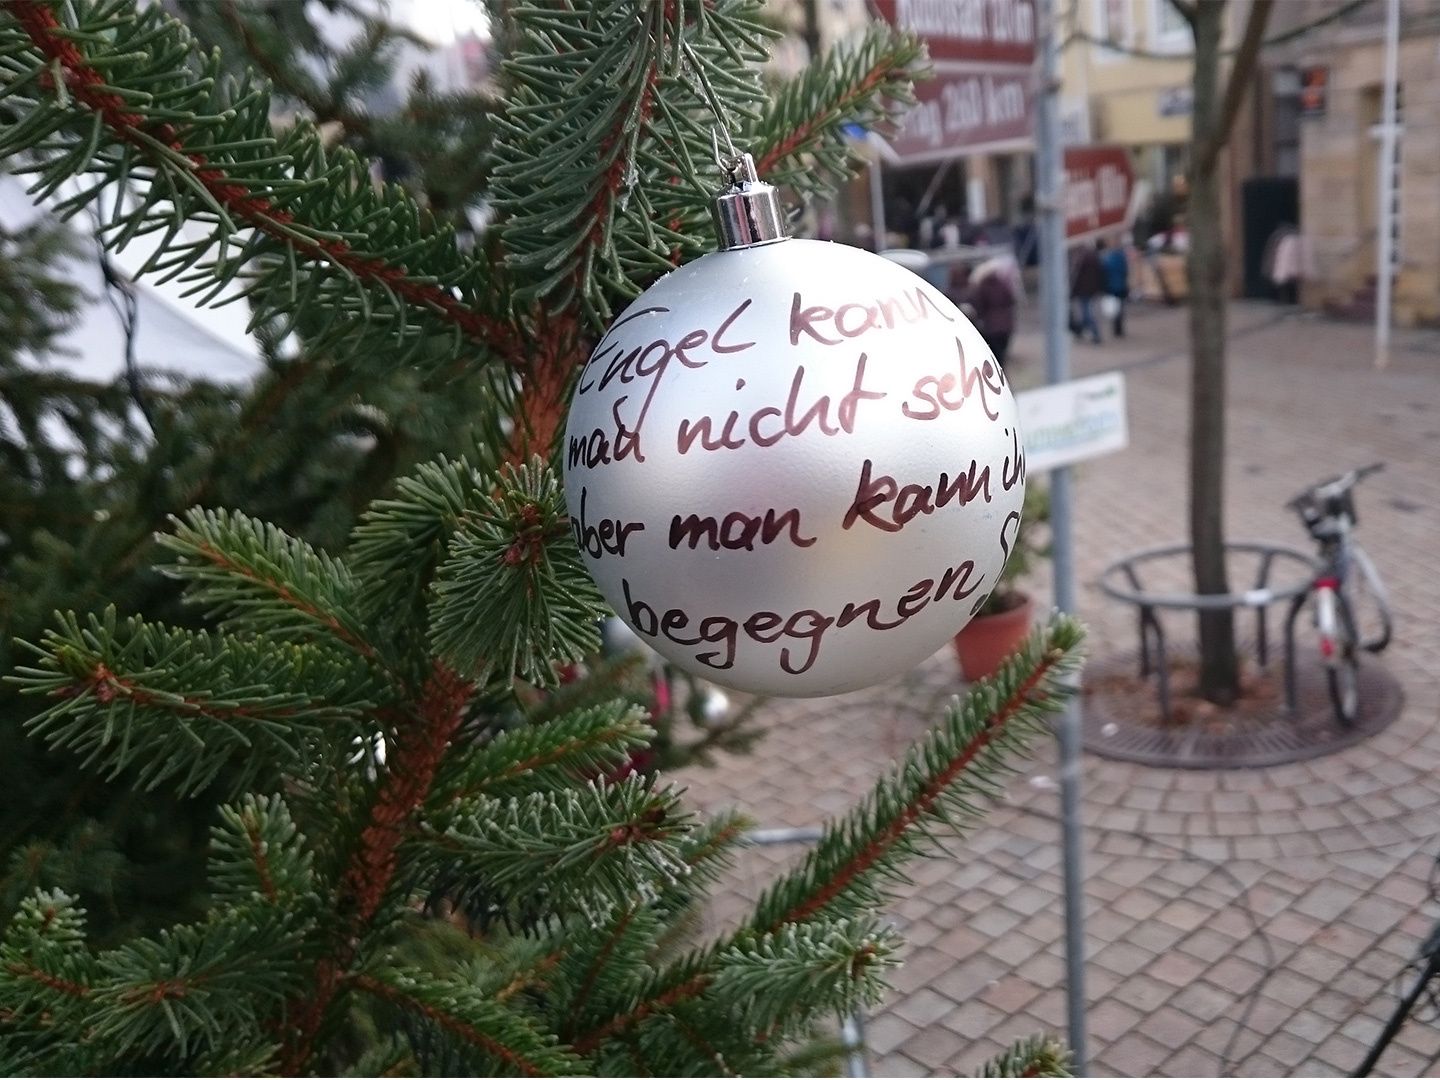 Engel kann
man nicht sehen
aber man kann ih
begegnen.
260 km